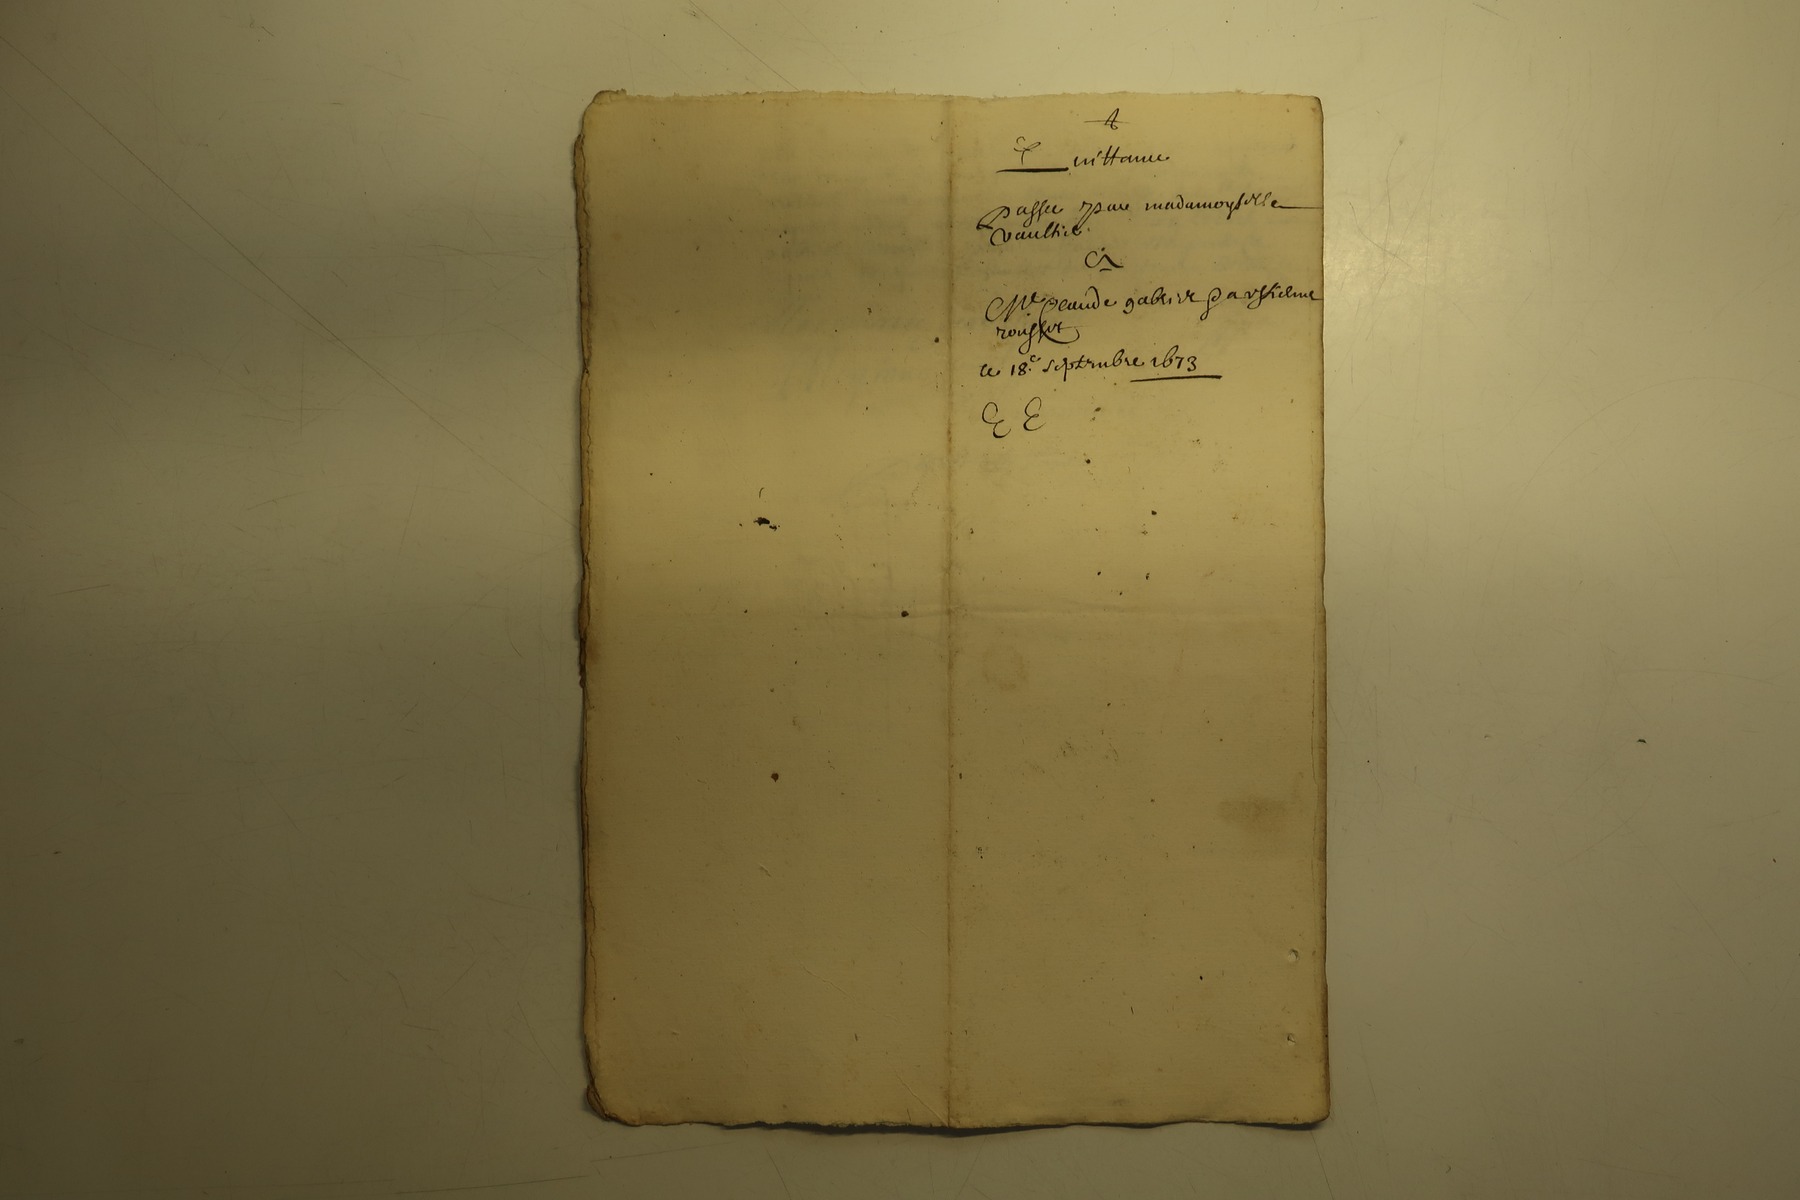 Quittance
passee par madamoyselle
vaultier
A
Mre Claude gabriel
rousset
le 18e septembre 1673
E E